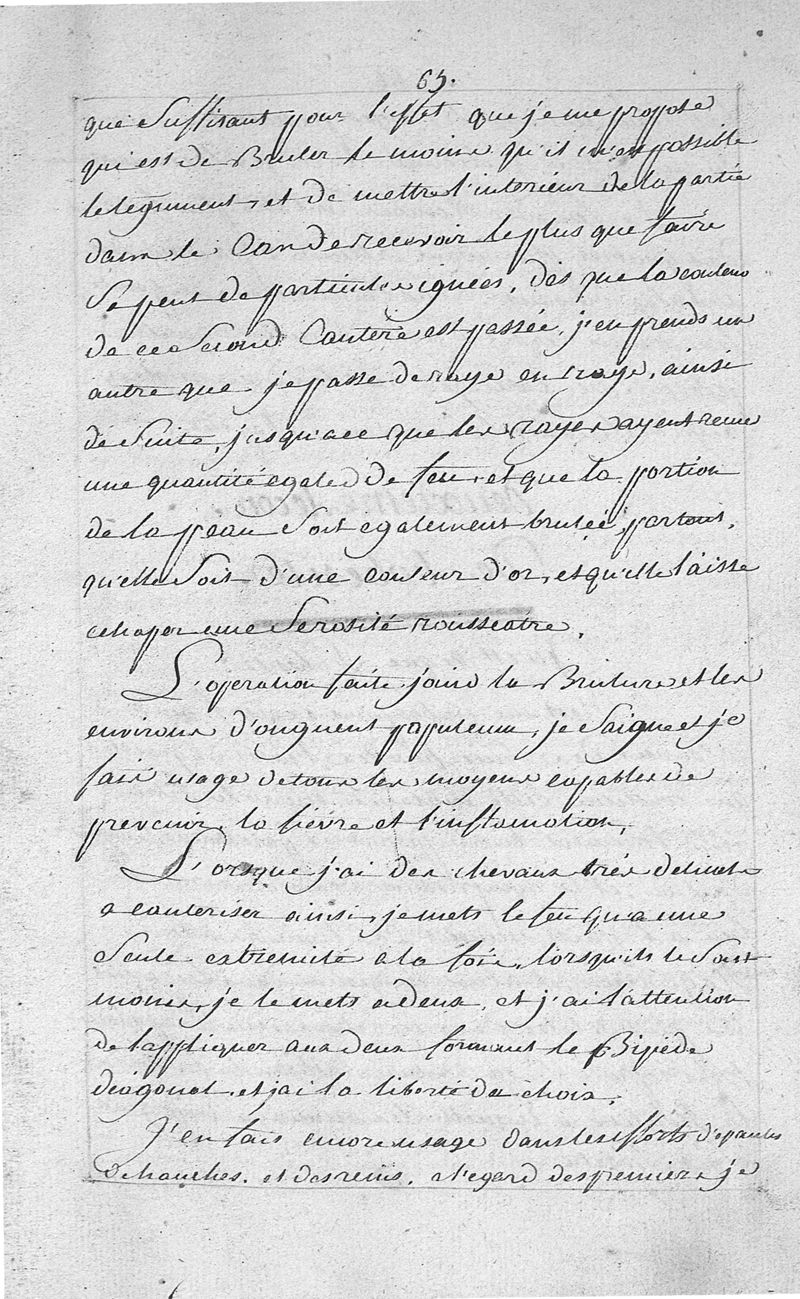 63.
que Suffisant pour l'effet que je me propose
qui est de Bruler le moins qu'il m'est possible
le tegument, et de mettre l'interieur de la partie
dans le Cas de recevoir le plus que faire
Se peut de particules ignées, dès que la couleur
de ce Second Cautere est passée, j'en prends un
autre que je passe de raye en raye, ainsi
de Suite, jusqu'a ce que les rayes ayent recue
une quantité egale de feu, et que la portion
de la peau Soit egalement brulée, partout,
qu'elle Soit d'une couleur d'or, et qu'elle laisse
echaper une Serosité rousseatre.
L'operation faite j'oins la Brulure et les
environs d'onguent populeum, je Saigne et je
fais usage de tous les moyens capables de
prevenir la fièvre et l'inflamation.
L'orsque j'ai des chevaux très delicats
a cauteriser ainsi, je mets le feu qu'a une
Seule extremité a la fois, lorsqu'ils le Sont
moins, je le mets a deux, et j'ai l'attention
de l'appliquer aux deux formant le Bipède
diagonal, et j'ai la liberté du choix.
J'en fais encore usage dans les efforts d'epaules
de hanches, et des reins, a l'egard des premiers je